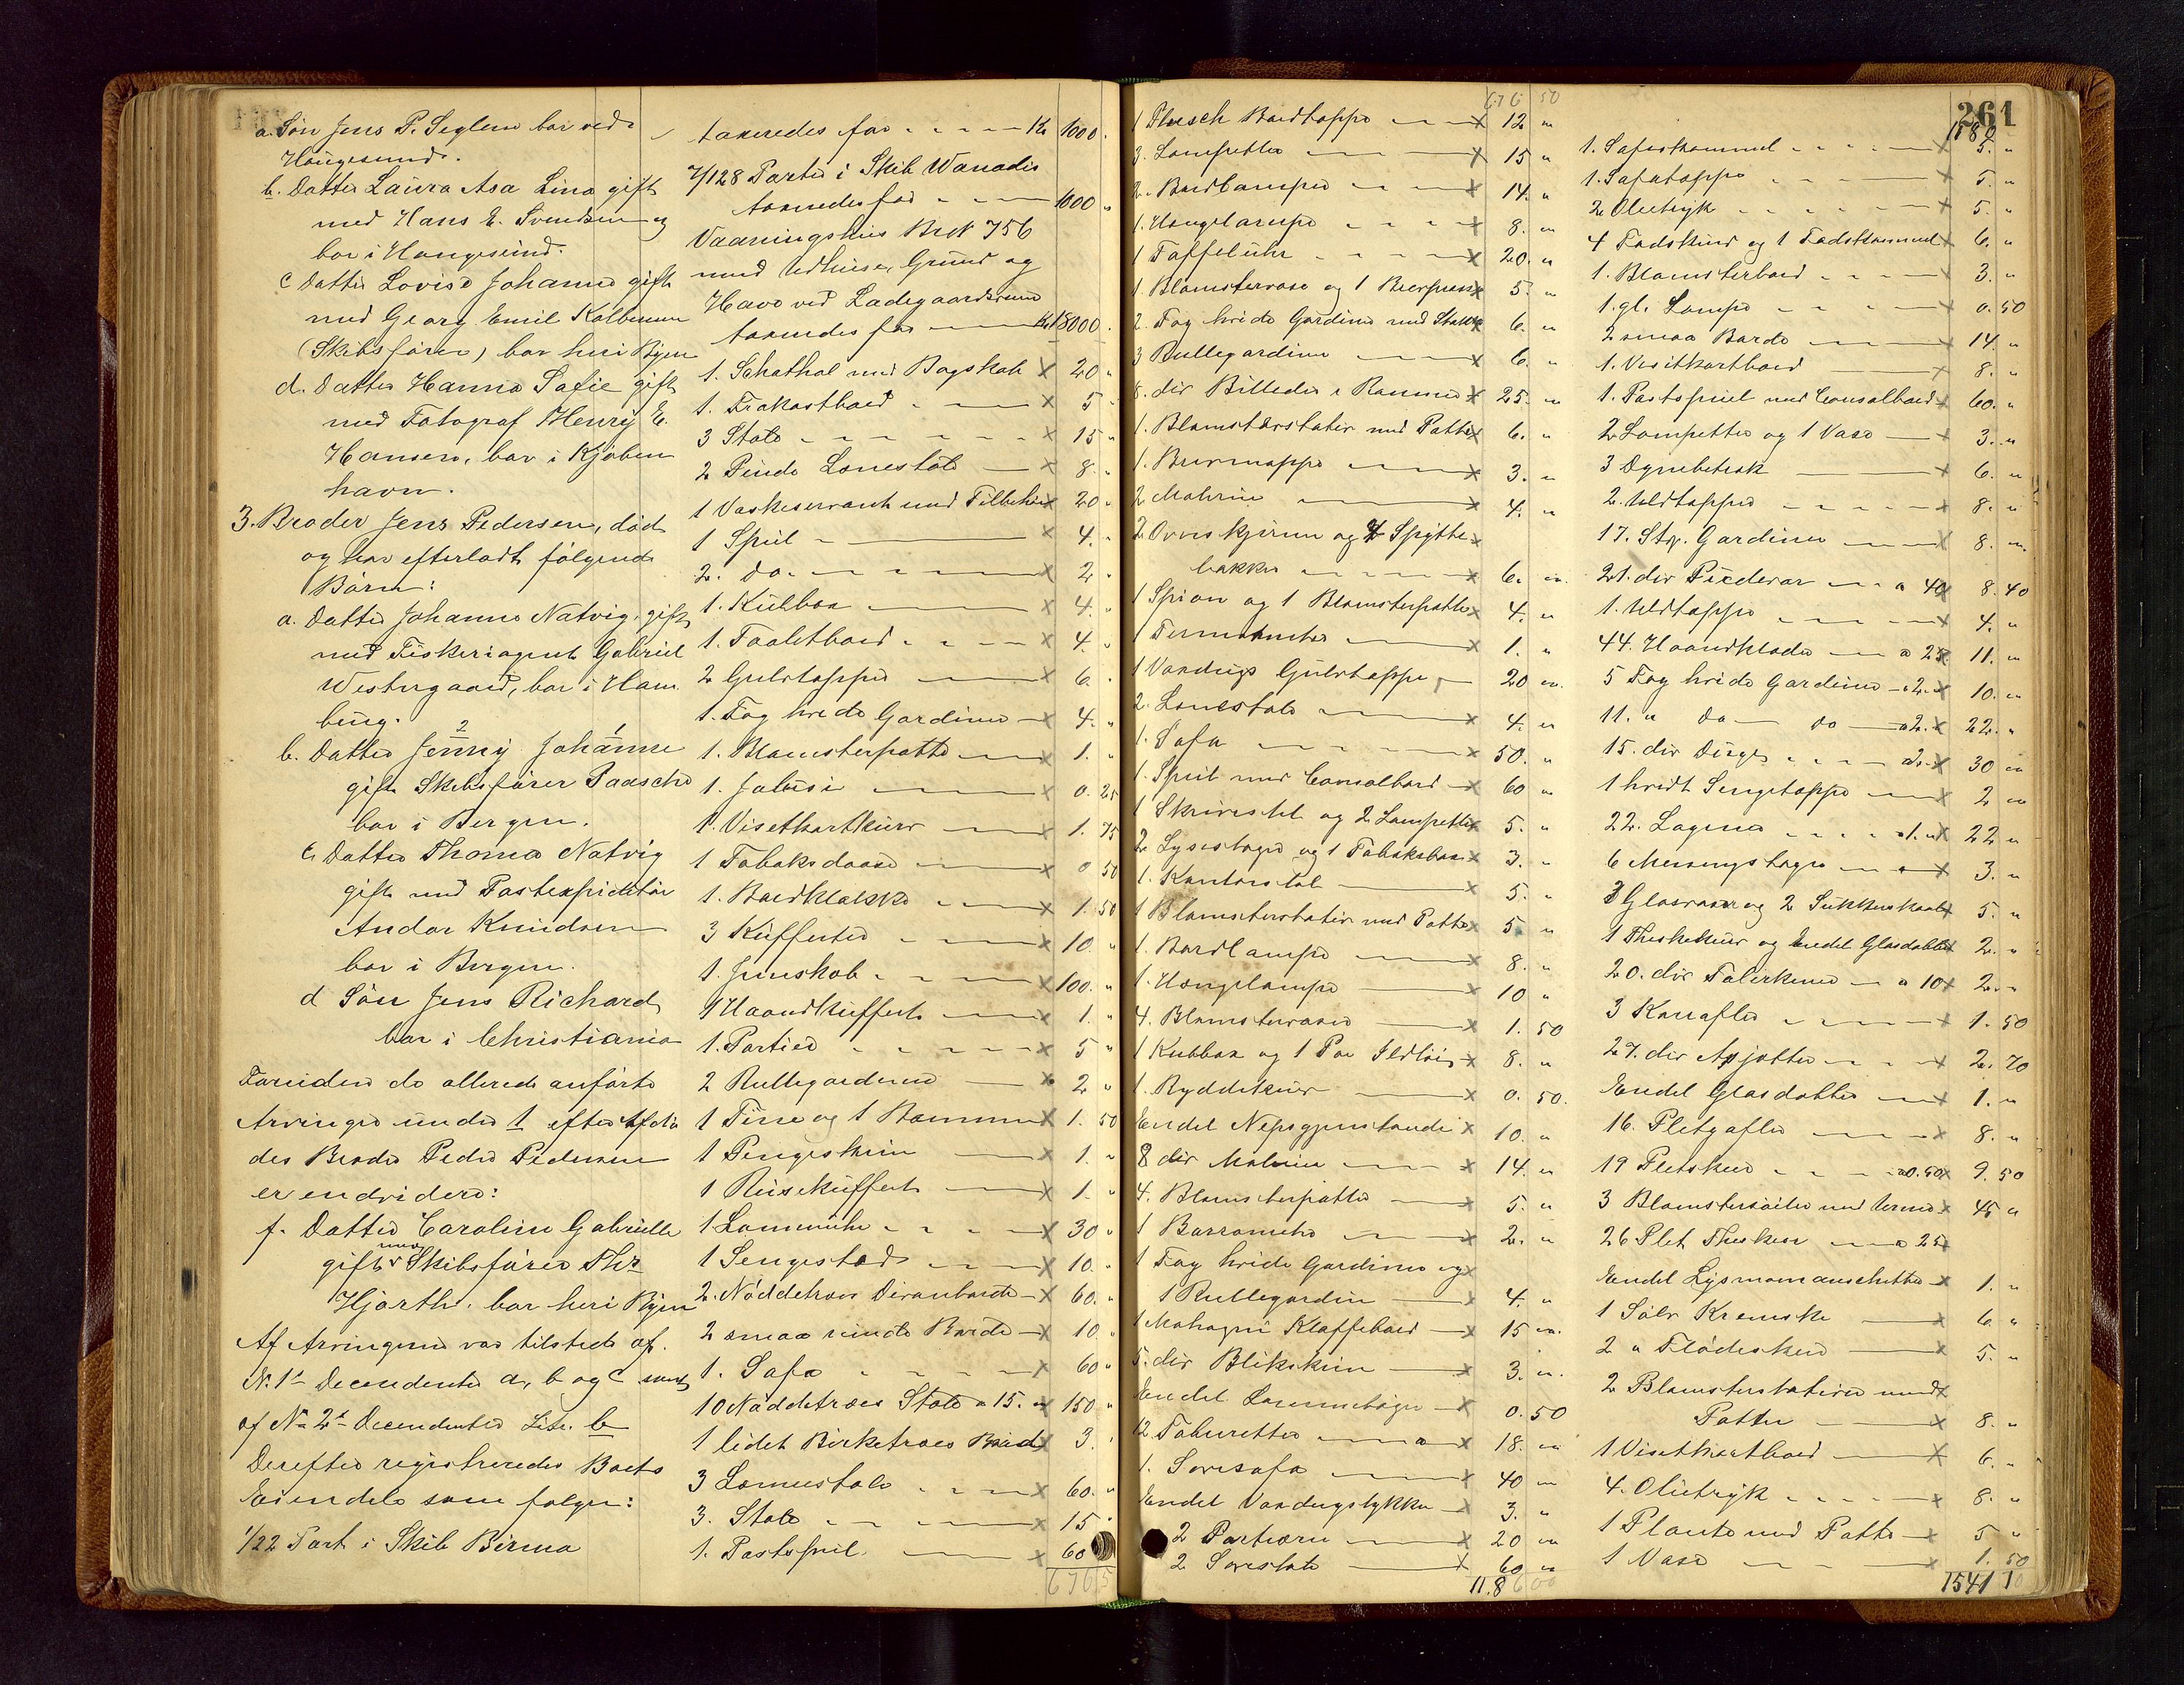 a. Søn Jens P. Seglem bor ved
Haugesund.
b. Datter Laura Asa Lina gift
med Hans E. Svendsen og
bor i Haugesund.
c Datter Lovise Johanne gift
med Georg Emil Kolbensen
(Skibsfører) bor her i Byen
d. Datter Hanna Sofie gift
med Fotograf Henry E.
Hansen, bor i Kjøben
havn.
3. Broder Jens Pedersen, død
og har efterladt følgende
Børn:
a. Datter Johanne Natvig, gift
med Fiskeriagent Gabriel
Westergaard, bor i Ham
burg.
2 1
b. Datter Jenny Johanne
gift Skibsfører Paasche
bor i Bergen.
c. Datter Thoma Natvig
gift med Postexpeditør
Andor Knudsen
bor i Bergen.
d Søn Jens Richard
bor i Christiania
Foruden de allerede anførte
Arvinger under 1 efter Afdø
des Broder Peder Pedersen
er endvidere:
f. Datter Caroline Gabrielle
gift med Skibsfører Ths
Hjorth. bor her i Byen
Af Arvingerne var tilstede af.
No 1s Decendenter a, b og c samt
af No 2s Decendenter Litr. b
Derefter registreredes Boets
Eiendele som følger:
1/22 Part i Skib Birma
taxeredes for Kr 1000.
7/128 Parter i Skib Wanadis
taxeredes for 1000 "
Vaaningshus Br No 756
med Udhuse, Grund og
Have ved Ladegaardsveien
taxeredes for Kr 18000.
1. Schathol med Bogskab x 20 "
1. Frokostbord x 5 "
3 Stole x 15 "
2 Pinde Lænestole x 8. "
1 Vaskeservant med Tilbehør x 20 "
1 Speil x 4. "
2. do. x 2 "
1. Kulbox x 4. "
1. Toiletbord x 4. "
2 Gulvtæpper x 6. "
1. Fag hvide Gardiner x 4. "
1. Blomsterpotte x 1. "
1. Jalusi x 0. 25
1. Visetkartkurv x 1. 75
1 Tobaksdaase x 0 50
1. Bordklokke x 1. 50
3 Kufferter x 10 "
1. Jernskab x 100. "
1 Haandkuffert x 1. "
1. Portier x 5 "
2 Rullegardiner x 2 "
1 Tine og 1 Bommme x 1. 50
1 Pengeskrin x 1. "
1 Reisekuffert x 1. "
1 Lommeuhr x 30 "
1 Sengested x 10. "
2. Nøddetræes Divanborde x 60. "
2 smaa runde Borde x 10. "
1. Sofa x 60 "
10 Nøddetræes Stole a 15. x 150 "
1 lidet Birketræes Bord x 3. "
3 Lænestole x 60. "
3. Stole x 15 "
1. Postspeil x 60
676 5
676 50
1 Plusch Bordtæppe x 12 "
3. Lampetter x 15 "
2. Bordlamper x 14. "
1. Hængelampe x 8. "
1 Taffeluhr x 20. "
1. Blomstervase og 1 Brevpresse x 5. "
2. Fag hvide Gardiner med Stokke x 6. "
3 Rullegardiner x 6. "
8. div Billeder i Rammer x 25. "
1. Blomsterstativ med Potte x 6. "
1. Brevmappe x 3. "
2 Malerier x 4. "
2 Ovnskjerme og 4 Spytte
bakker x 6. "
1 Spion og 1 Blomsterpotte x 4. "
1 Termometer x 1. "
1 Voxdugs Gulvtæppe 20 "
2. Lænestole x 4. "
1. Sofa x 50. "
1. Speil med Consolbord x 60 "
1 Skrivestel og 2 Lampetter x 5. "
2 Lysestager og 1 Tobaksbox x 3. "
1. Kontorstol x 5. "
1 Blomsterstativ med Potte x 5. "
1. Bordlampe x 8. "
1. Hængelampe x 10 "
4. Blomstervaser x 1. 50
1 Kulbox og 1 Par Ildtøi x 8. "
1. Ryddekurv x 0. 50.
Endel Nepsgjenstande x 10. "
8 div Malerier x 14. "
4. Blomsterpotter x 5. "
1 Barrometer x 2. "
1 Fag hvide Gardiner og
1 Rullegardin x 4. "
1 Mahogni Klaffebord x 15 "
5. div Blikskrin x 3. "
Endel Lommebøger x 0. 50
12 Taburetter a x 18. "
1. Sovesofa x 40 "
Endel Voxdugstykker x 3. "
2 Portierer x 20 "
2 Sovestole x 60 "
11.8600
261
1182
1. Sofaskammel x 5. "
1. Sofatæppe x 5. "
2 Olietryk x 5. "
4 Fodskind og 1 Fodskammel x 6. "
1. Blomsterbord x 3. "
1. gl. Lampe 0. 50
2 smaa Borde x 14. "
1. Visitkartbord x 8. "
1. Postspeil med Consolbord x 60. "
2 Lampetter og 1 Vase 3. "
3 Dynebetræk 6. "
2. Uldtæpper x 8. "
17. Stp. Gardiner x 8. "
21. div Pudevar a 40 x 8. 40
1. Uldtæppe x 4. "
44. Haandklæder a 25 x 11. "
5 Fag hvide Gardiner a 2. x 10. "
11. " do do a 2. x 22. "
15. div Duge a 2. x 30 "
1 hvidt Sengetæppe x 2 "
22. Lagener a 1. " x 22 "
6 Messingstager x 3. "
3 Glasvaser og 2 Sukkerskaale x 5. "
1 Theskekurv og Endel Glasdaatter x 2. "
20. div Talerkener a 10 x 2. "
3 Karafler x 1. 50
27. div Asjetter x 2. 70
Endel Glasdotter x 1. "
16. Pletgafler x 8. "
19 Pletskeer a 0.50 x 9. 50
3 Blomstersøiler med Urner x 45 "
26 Plet Theskeer a 25 x
Endel Lysmamanschetter x 1. "
1 Sølv Kremske x 6. "
2 " Flødeskeer x 5. "
2 Blomsterstativer med
Potter x 8. "
1 Visetkartbord x 6. "
4. Olietryk x 8. "
1 Plante med Potte x 5 "
1 Vase x 1. 50
1541 10